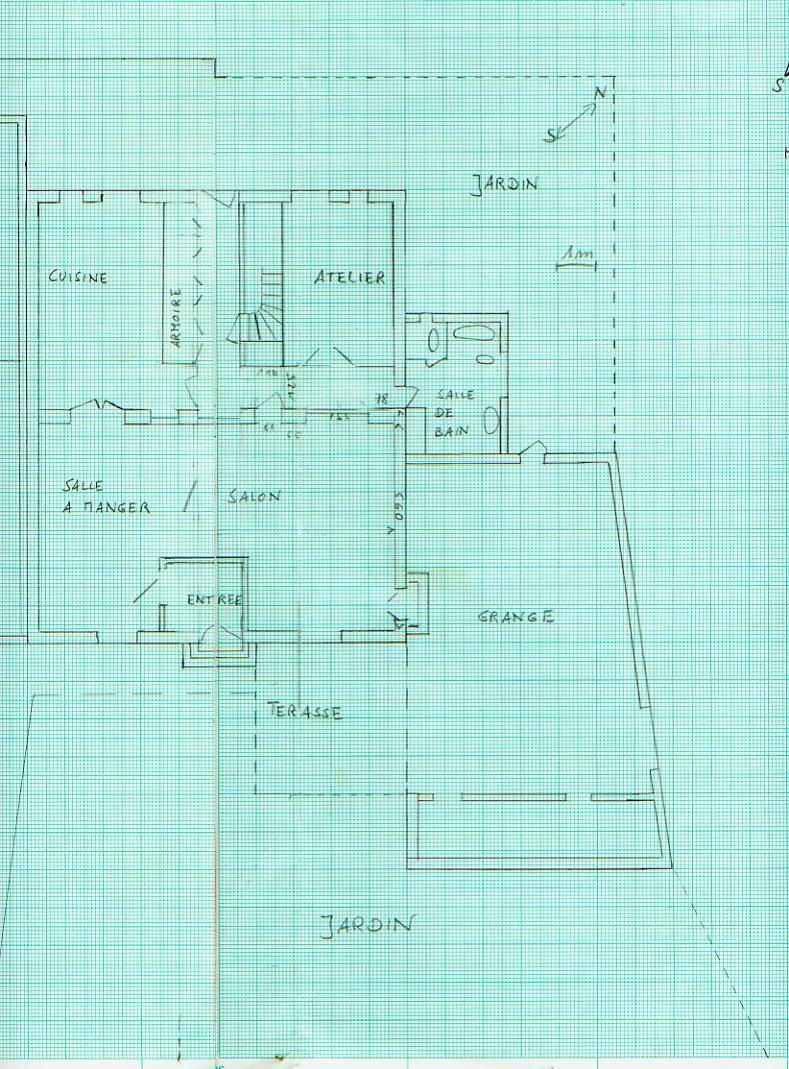 S
N
S
JARDIN
1m
CUISINE
ATELIER
ARMOIRE
110
125
78
SALLE
DE
BAIN
SALLE
A MANGER
SALON
560
ENTREE
GRANGE
TERASSE
JARDIN